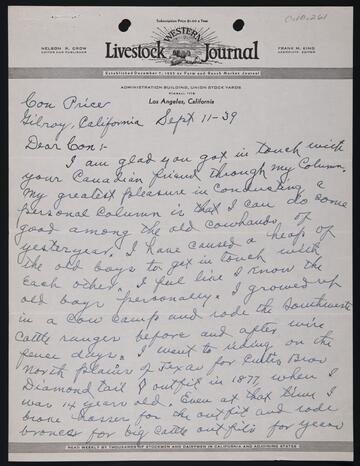 Subscription Price $1.00 a Year
WESTERN
Livestock Journal
NELSON R. CROW
EDITOR AND PUBLISHER
FRANK M. KING
ASSOCIATE EDITOR
Established December 7, 1922 as Farm and Ranch Market Journal
ADMINISTRATION BUILDING, UNION STOCK YARDS
Los Angeles, California
Con Price
Gilroy, California Sept 11-39
Dear Con:-
I am glad you got in touch with
your Canadian friend through my Column.
My greatest pleasure in conducting a
personal Column is that I can do some
good among the old Cowhands of
yesteryear. I have caused a heap of
the old boys to get in touch with
each other. I feel like I know the
old boys personally. I growed up
in a cow camp and rode the Southwest
Cattle ranges before and after wire
fence days. I went to riding on the
North plains of Texas for Curtis Bros
Diamond tail outfit in 1877, when I
was 14 years old. Even at that time I
broke hosses for the outfit and rode
broncos for big Cattle outfits for years
READ WEEKLY BY THOUSANDS OF STOCKMEN AND DAIRYMEN IN CALIFORNIA AND ADJOINING STATES